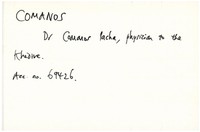 COMANOS
Dr Comanos Pacha, physician to the
Khedive.
Acc no. 69426.